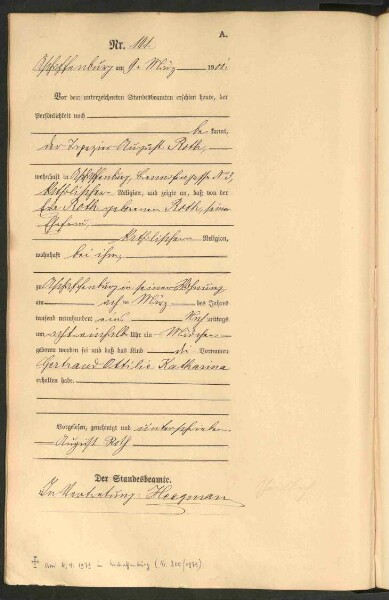 A.
Nr. 101.
Aschaffenburg am 9. März 1901
Vor dem unterzeichneten Standesbeamten erschien heute, der
Persönlichkeit nach
be kannt,
der Tapezier August Roth,
wohnhaft in Aschaffenburg,
katholischer Religion, und zeigte an, daß von der
Roth geborenen Roth, seiner
Ehefrau,
katholischer Religion,
wohnhaft bei ihm,
zu Aschaffenburg in seiner Wohnung
am acht März des Jahres
tausend neunhundert eins Nach mittags
um acht einhalb Uhr ein Mädchen
geboren worden sei und daß das Kind die Vornamen
Gertraud Ottilie Katharina
erhalten habe.
Vorgelesen, genehmigt und unterschrieben
August Roth
Der Standesbeamte.
In Vertretung: Hoegman
1979 in Aschaffenburg